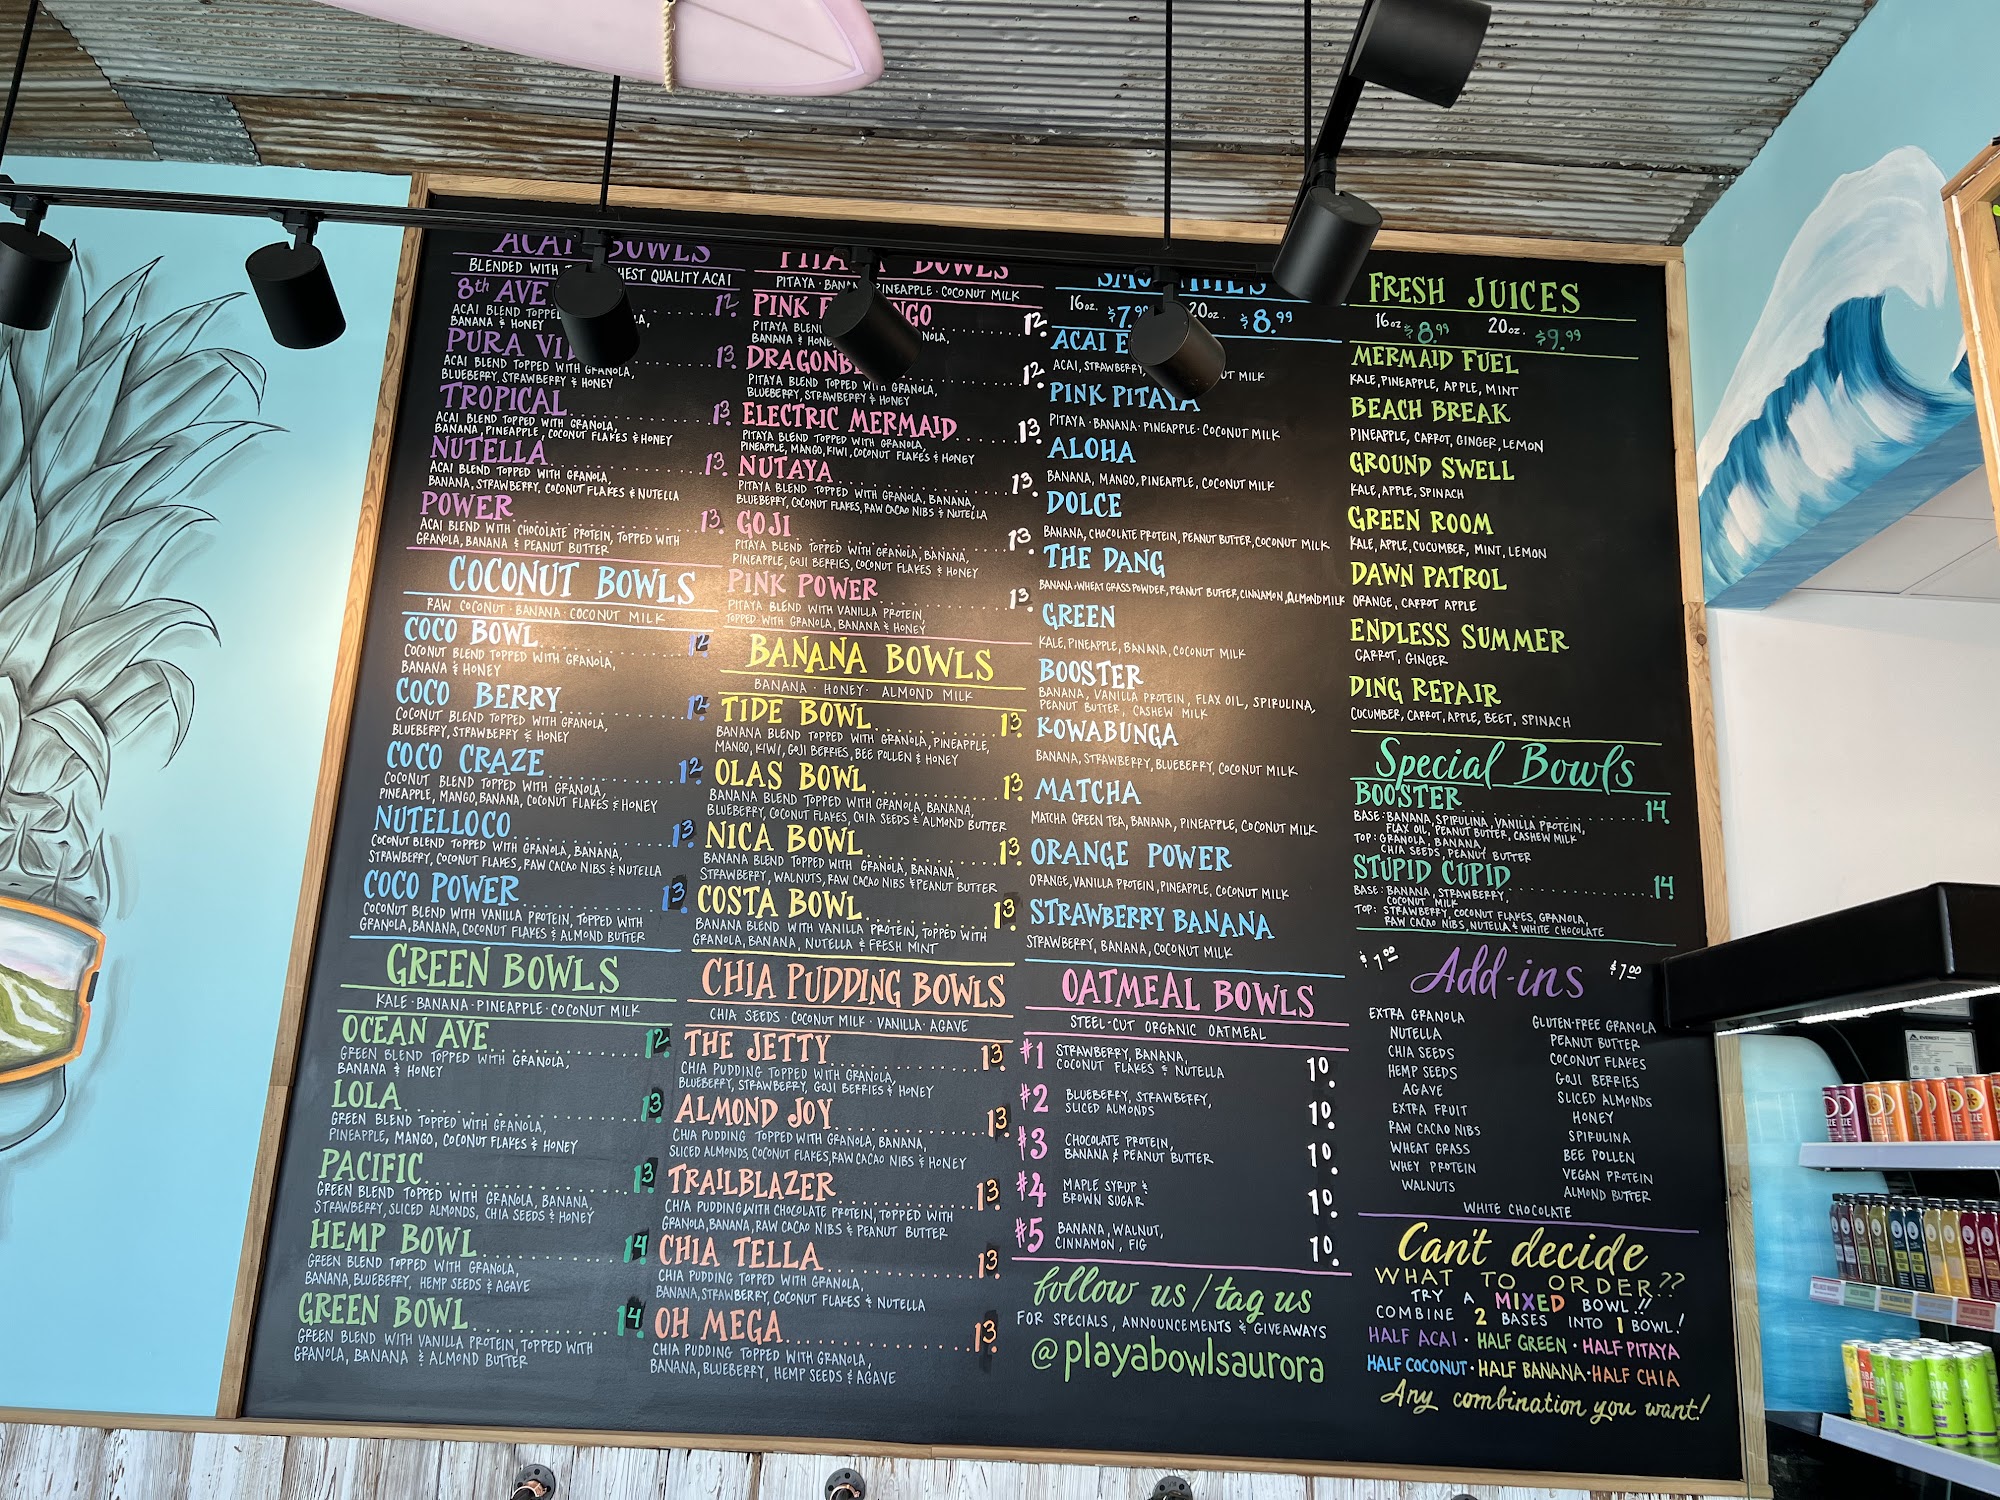 ACAI BOWLS
BLENDED WITH HIGHEST QUALITY ACAI
8th AVE 12.
ACAI BLEND TOPPED
BANANA & HONEY
PURA VI 13.
ACAI BLEND TOPPED WITH GRANOLA,
BLUEBERRY, STRAWBERRY & HONEY
TROPICAL 13.
ACAI BLEND TOPPED WITH GRANOLA,
BANANA, PINEAPPLE, COCONUT FLAKES & HONEY
NUTELLA 13.
ACAI BLEND TOPPED WITH GRANOLA,
BANANA, STRAWBERRY, COCONUT FLAKES & NUTELLA
POWER 13.
ACAI BLEND WITH CHOCOLATE PROTEIN, TOPPED WITH
GRANOLA, BANANA & PEANUT BUTTER
COCONUT BOWLS
RAW COCONUT · BANANA · COCONUT MILK
COCO BOWL 12.
COCONUT BLEND TOPPED WITH GRANOLA,
BANANA & HONEY
COCO BERRY 12.
COCONUT BLEND TOPPED WITH GRANOLA,
BLUEBERRY, STRAWBERRY & HONEY
COCO CRAZE 12.
COCONUT BLEND TOPPED WITH GRANOLA,
PINEAPPLE, MANGO, BANANA, COCONUT FLAKES & HONEY
NUTELLOCO 13.
COCONUT BLEND TOPPED WITH GRANOLA, BANANA,
STRAWBERRY, COCONUT FLAKES, RAW CACAO NIBS & NUTELLA
COCO POWER 13.
COCONUT BLEND WITH VANILLA PROTEIN, TOPPED WITH
GRANOLA, BANANA, COCONUT FLAKES & ALMOND BUTTER
GREEN BOWLS
KALE · BANANA · PINEAPPLE · COCONUT MILK
OCEAN AVE 12.
GREEN BLEND TOPPED WITH GRANOLA,
BANANA & HONEY
LOLA 13.
GREEN BLEND TOPPED WITH GRANOLA,
PINEAPPLE, MANGO, COCONUT FLAKES & HONEY
PACIFIC 13.
GREEN BLEND TOPPED WITH GRANOLA, BANANA,
STRAWBERRY, SLICED ALMONDS, CHIA SEEDS & HONEY
HEMP BOWL 14.
GREEN BLEND TOPPED WITH GRANOLA,
BANANA, BLUEBERRY, HEMP SEEDS & AGAVE
GREEN BOWL 14.
GREEN BLEND WITH VANILLA PROTEIN, TOPPED WITH
GRANOLA, BANANA & ALMOND BUTTER
PITAYA BOWLS
PITAYA · BANANA · PINEAPPLE · COCONUT MILK
PINK 12.
PITAYA BLEND
BANANA & HONEY
DRAGONB 12.
PITAYA BLEND TOPPED WITH GRANOLA,
BLUEBERRY, STRAWBERRY & HONEY
ELECTRIC MERMAID 13.
PITAYA BLEND TOPPED WITH GRANOLA,
PINEAPPLE, MANGO, KIWI, COCONUT FLAKES & HONEY
NUTAYA 13.
PITAYA BLEND TOPPED WITH GRANOLA, BANANA,
BLUEBERRY, COCONUT FLAKES, RAW CACAO NIBS & NUTELLA
GOJI 13.
PITAYA BLEND TOPPED WITH GRANOLA, BANANA,
PINEAPPLE, GOJI BERRIES, COCONUT FLAKES & HONEY
PINK POWER 13.
PITAYA BLEND WITH VANILLA PROTEIN,
TOPPED WITH GRANOLA, BANANA & HONEY
BANANA BOWLS
BANANA · HONEY · ALMOND MILK
TIDE BOWL 13.
BANANA BLEND TOPPED WITH GRANOLA, PINEAPPLE,
MANGO, KIWI, GOJI BERRIES, BEE POLLEN & HONEY
OLAS BOWL 13.
BANANA BLEND TOPPED WITH GRANOLA, BANANA,
BLUEBERRY, COCONUT FLAKES, CHIA SEEDS & ALMOND BUTTER
NICA BOWL 13.
BANANA BLEND TOPPED WITH GRANOLA, BANANA,
STRAWBERRY, WALNUTS, RAW CACAO NIBS & PEANUT BUTTER
COSTA BOWL 13.
BANANA BLEND WITH VANILLA PROTEIN, TOPPED WITH
GRANOLA, BANANA, NUTELLA & FRESH MINT
CHIA PUDDING BOWLS
CHIA SEEDS · COCONUT MILK · VANILLA · AGAVE
THE JETTY 13.
CHIA PUDDING TOPPED WITH GRANOLA,
BLUEBERRY, STRAWBERRY, GOJI BERRIES & HONEY
ALMOND JOY 13.
CHIA PUDDING TOPPED WITH GRANOLA, BANANA,
SLICED ALMONDS, COCONUT FLAKES, RAW CACAO NIBS & HONEY
TRAILBLAZER 13.
CHIA PUDDING WITH CHOCOLATE PROTEIN, TOPPED WITH
GRANOLA, BANANA, RAW CACAO NIBS & PEANUT BUTTER
CHIA TELLA 13.
CHIA PUDDING TOPPED WITH GRANOLA,
BANANA, STRAWBERRY, COCONUT FLAKES & NUTELLA
OH MEGA 13.
CHIA PUDDING TOPPED WITH GRANOLA,
BANANA, BLUEBERRY, HEMP SEEDS & AGAVE
SMOOTHIES
16oz. $7.99 20oz. $8.99
ACAI
ACAI, STRAWBERRY, MILK
PINK PITAYA
PITAYA · BANANA · PINEAPPLE · COCONUT MILK
ALOHA
BANANA, MANGO, PINEAPPLE, COCONUT MILK
DOLCE
BANANA, CHOCOLATE PROTEIN, PEANUT BUTTER, COCONUT MILK
THE DANG
BANANA, WHEAT GRASS POWDER, PEANUT BUTTER, CINNAMON, ALMOND MILK
GREEN
KALE, PINEAPPLE, BANANA, COCONUT MILK
BOOSTER
BANANA, VANILLA PROTEIN, FLAX OIL, SPIRULINA,
PEANUT BUTTER, CASHEW MILK
KOWABUNGA
BANANA, STRAWBERRY, BLUEBERRY, COCONUT MILK
MATCHA
MATCHA GREEN TEA, BANANA, PINEAPPLE, COCONUT MILK
ORANGE POWER
ORANGE, VANILLA PROTEIN, PINEAPPLE, COCONUT MILK
STRAWBERRY BANANA
STRAWBERRY, BANANA, COCONUT MILK
OATMEAL BOWLS
STEEL-CUT ORGANIC OATMEAL
#1 STRAWBERRY, BANANA, 10.
COCONUT FLAKES & NUTELLA
#2 BLUEBERRY, STRAWBERRY, 10.
SLICED ALMONDS
#3 CHOCOLATE PROTEIN, 10.
BANANA & PEANUT BUTTER
#4 MAPLE SYRUP & 10.
BROWN SUGAR
#5 BANANA, WALNUT, 10.
CINNAMON, FIG
follow us / tag us
FOR SPECIALS, ANNOUNCEMENTS & GIVEAWAYS
@playabowlsaurora
FRESH JUICES
16oz. $8.99 20oz. $9.99
MERMAID FUEL
KALE, PINEAPPLE, APPLE, MINT
BEACH BREAK
PINEAPPLE, CARROT, GINGER, LEMON
GROUND SWELL
KALE, APPLE, SPINACH
GREEN ROOM
KALE, APPLE, CUCUMBER, MINT, LEMON
DAWN PATROL
ORANGE, CARROT APPLE
ENDLESS SUMMER
CARROT, GINGER
DING REPAIR
CUCUMBER, CARROT, APPLE, BEET, SPINACH
Special Bowls
BOOSTER 14.
BASE: BANANA, SPIRULINA, VANILLA PROTEIN,
FLAX OIL, PEANUT BUTTER, CASHEW MILK
TOP: GRANOLA, BANANA,
CHIA SEEDS, PEANUT BUTTER
STUPID CUPID 14.
BASE: BANANA, STRAWBERRY,
COCONUT MILK
TOP: STRAWBERRY, COCONUT FLAKES, GRANOLA,
RAW CACAO NIBS, NUTELLA & WHITE CHOCOLATE
$1.00 Add-ins $1.00
EXTRA GRANOLA
NUTELLA
CHIA SEEDS
HEMP SEEDS
AGAVE
EXTRA FRUIT
RAW CACAO NIBS
WHEAT GRASS
WHEY PROTEIN
WALNUTS
GLUTEN-FREE GRANOLA
PEANUT BUTTER
COCONUT FLAKES
GOJI BERRIES
SLICED ALMONDS
HONEY
SPIRULINA
BEE POLLEN
VEGAN PROTEIN
ALMOND BUTTER
WHITE CHOCOLATE
Can't decide
WHAT TO ORDER??
TRY A MIXED BOWL!!
COMBINE 2 BASES INTO 1 BOWL!
HALF ACAI · HALF GREEN · HALF PITAYA
HALF COCONUT · HALF BANANA · HALF CHIA
Any combination you want!